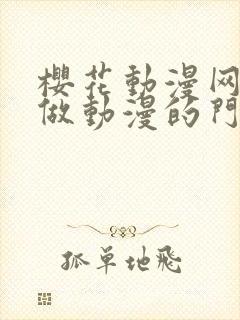 櫻花動漫网
做動漫的門
孤單地飛